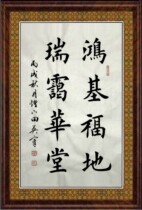 鴻基福地
瑞靄華堂
丙戌秋月